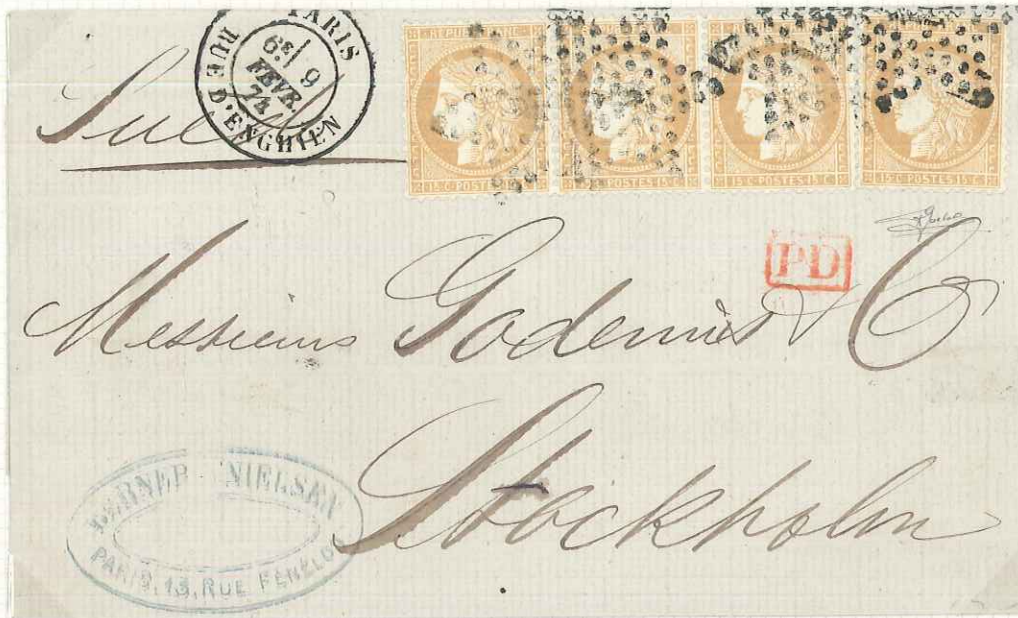 PARIS
6E/ 9
FEVR.
74
RUE D'ENGHIEN
REPUB
15 C·POSTES·15 C
POSTES·15 C
15 C·POSTES·15 C
15 C·POSTES·15 C
PD
Messieurs Godenius & C
Stockholm
NIELSEN
PARIS, 13, RUE FENELO